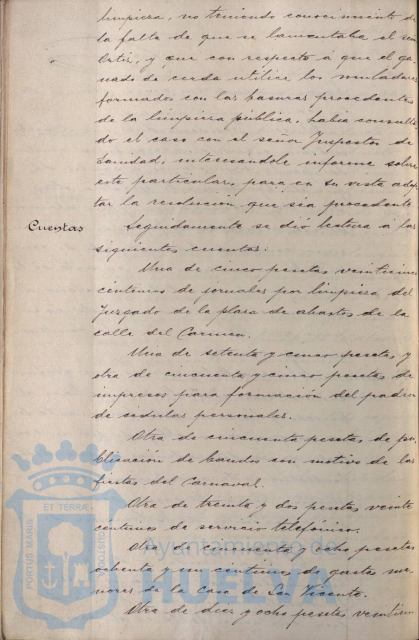 limpieza, no teniendo conocimiento de
la falta de que se lamentaba el señor
Ortiz, y que con respecto á que el ga-
nado de cerda utilice los muladares
formados con las basuras procedentes
de la limpieza pública, había consulta-
do el caso con el señor Inspector de
Sanidad, interesándole informe sobre
este particular, para en su vista adop-
tar la resolución que sea procedente
Cuentas
Seguidamente se dió lectura á las
siguientes cuentas:
Una de cinco pesetas veinticinco
centimos de jornales por limpieza del
Juzgado de la plaza de abastos de la
calle del Carmen.
Una de setenta y cinco pesetas y
otra de cincuenta y cinco pesetas de
impresos para formación del padrón
de cedulas personales.
Otra de cincuenta pesetas de pu-
blicación de bandos con motivo de las
fiestas del Carnaval.
Otra de treinta y dos pesetas veinte
centimos de servicio telefónico.
Otra de cincuenta y ocho pesetas
ochenta y un centimos de gastos me-
nores de la Casa de San Vicente.
Otra de diez y ocho pesetas
PORTUS MARIS ET TERRÆ CUSTODIA
Ayuntamiento de
HUELVA